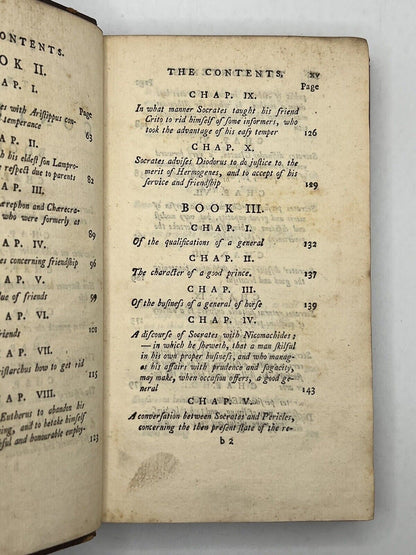 CONTENTS.
OOK II.
A P. I.
Page
s with Ariſtippus con-
temperance 63
A P. II.
h his eldeſt ſon Lampro-
reſpect due to parents 82
A P. III.
ærephon and Chærecra-
who were formerly at
89
A P. IV.
es concerning friendſhip 96
A P. V.
lue of friends 99
A P. VI.
friends 101
A P. VII.
iſtarchus how to get rid
115
A P. VIII.
Eutherus to abandon his
to betake himſelf
ful and honourable employ-
123
THE CONTENTS. xv
Page
CHAP. IX.
In what manner Socrates taught his friend
Crito to rid himſelf of ſome informers, who
took the advantage of his eaſy temper 126
CHAP. X.
Socrates adviſes Diodorus to do juſtice to the
merit of Hermogenes, and to accept of his
ſervice and friendſhip 129
BOOK III.
CHAP. I.
Of the qualifications of a general 132
CHAP. II.
The character of a good prince. 137
CHAP. III.
Of the buſineſs of a general of horſe 139
CHAP. IV.
A diſcourſe of Socrates with Nicomachides;
— in which he ſheweth, that a man ſkilful
in his own proper buſineſs, and who manag-
es his affairs with prudence and ſagacity,
may make, when occaſion offers, a good ge-
neral 143
CHAP. V.
A converſation between Socrates and Pericles,
concerning the then preſent ſtate of the re-
b 2